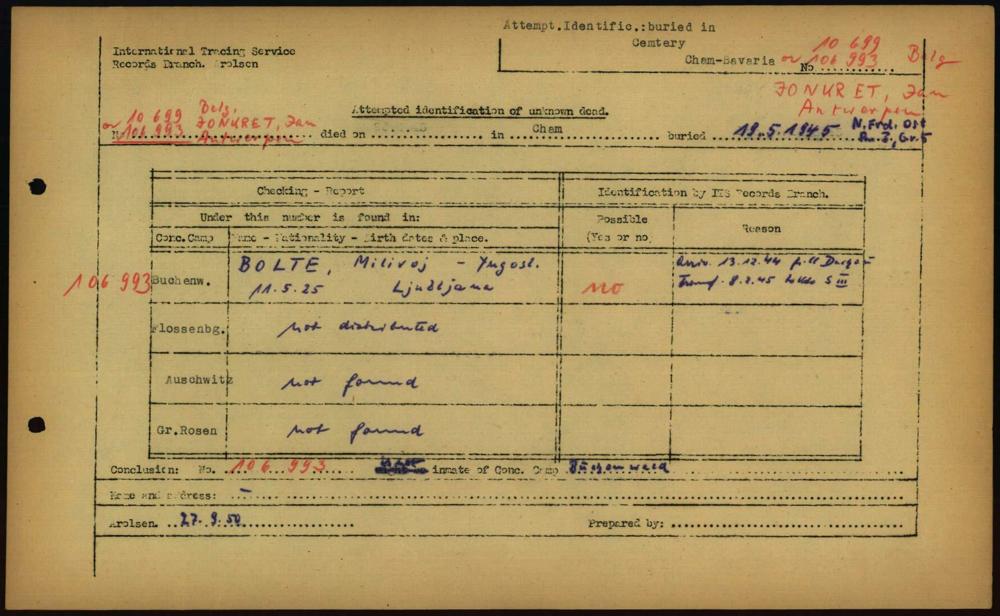 Attempt.Identific.:buried in
Cemtery
Cham-Bavaria No
10 699
or 106 993 Belg
JONKRET, Jan
Antwerpen
International Tracing Service
Records Branch. Arolsen
Attempted identification of unknown dead.
10 699 Belg.
or 106 993 JONKRET, Jan
Antwerpen
died on in Cham buried 19.5.1945 N. Frd. Ost
Gr. 5
Checking - Report Identification by ITS Records Branch.
Under this number is found in: Possible (Yes or no) Reason
Conc.Camp Name - Nationality - Birth dates & place.
106 993 Buchenw. BOLTE, Milivoj - Yugosl.
11.5.25 Ljubljana no
13.12.44
Transf. 8.2.45 S III
Flossenbg. not distributed
Auschwitz not found
Gr.Rosen not found
Conclusion: No. 106 993 inmate of Conc. Camp Buchenwald
Name and address: -
Arolsen. 27.9.50 Prepared by: